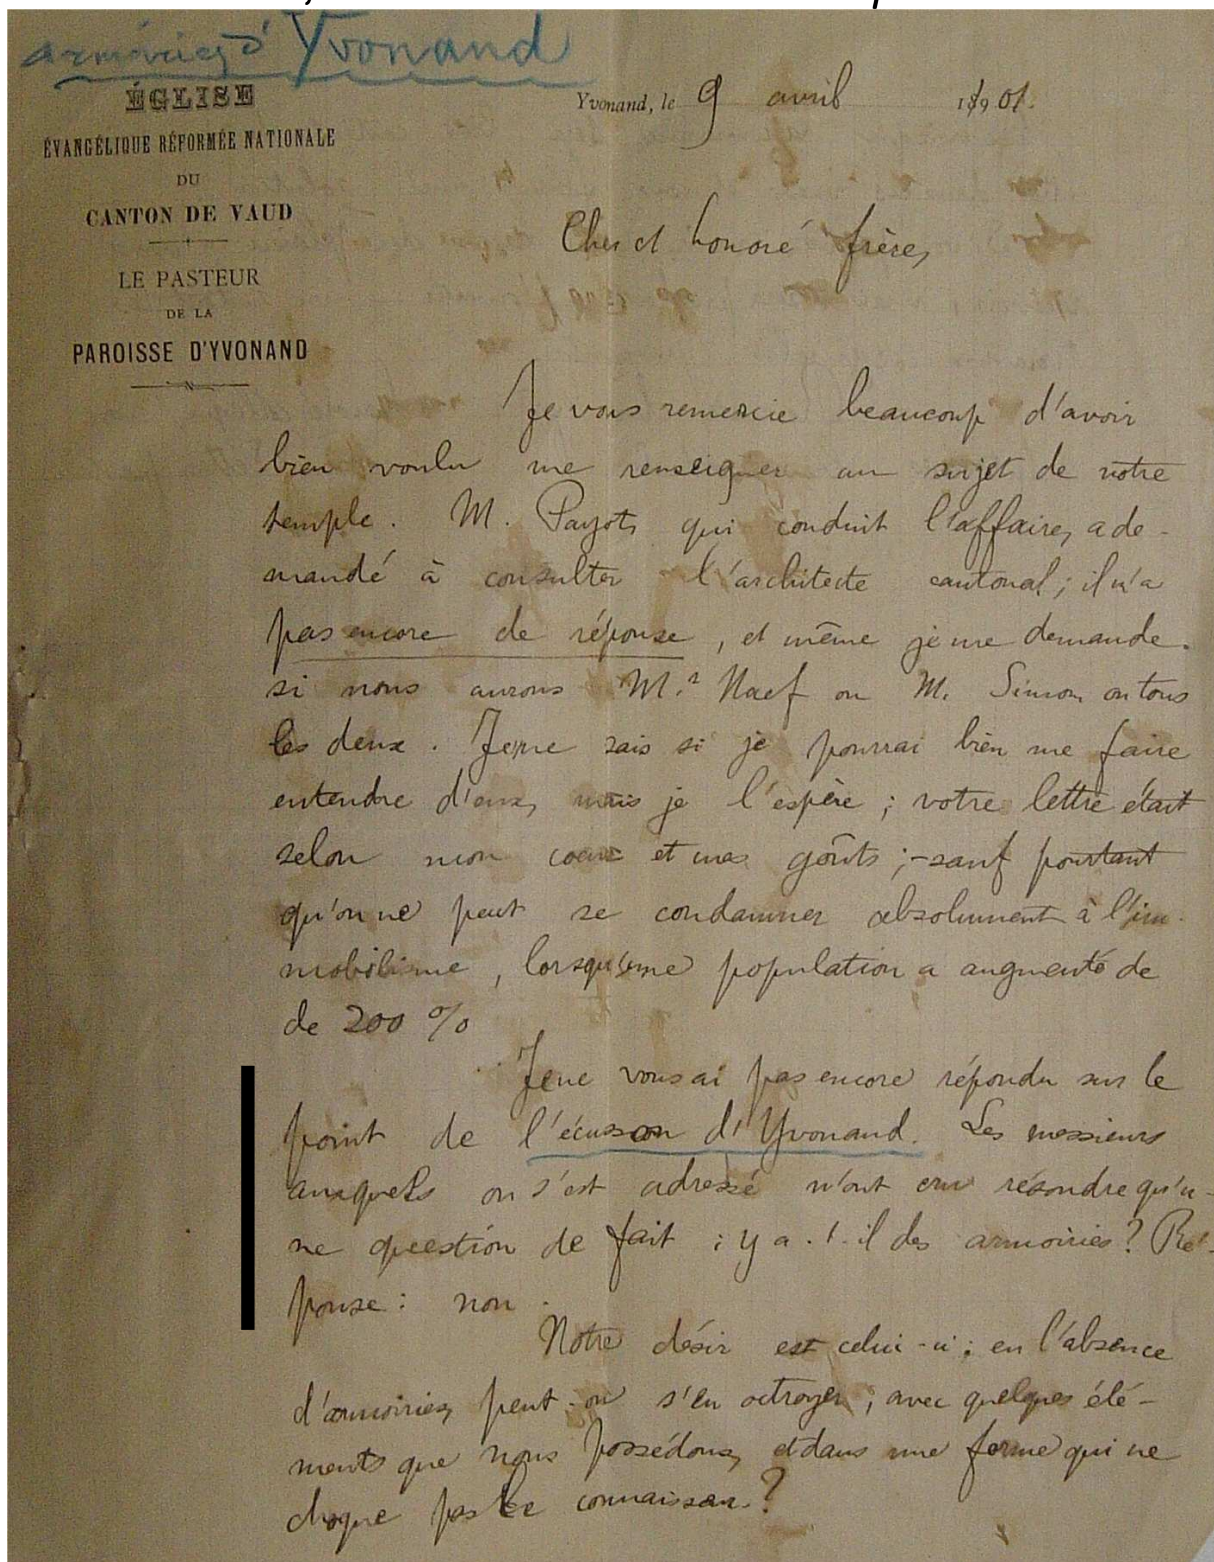 armoiries d'Yvonand
ÉGLISE
ÉVANGÉLIQUE RÉFORMÉE NATIONALE
DU
CANTON DE VAUD
LE PASTEUR
DE LA
PAROISSE D'YVONAND
Yvonand, le 9 avril 1901.
Cher et honoré frère,
Je vous remercie beaucoup d'avoir
bien voulu me renseigner au sujet de notre
temple. M. Payot, qui conduit l'affaire, a de-
mandé à consulter l'architecte cantonal; il n'a
pas encore de réponse, et même je me demande
si nous aurons M.r Naef ou M. Simon, ou tous
les deux. Je ne sais si je pourrai bien me faire
entendre d'eux, mais je l'espère; votre lettre était
selon mon coeur et mes goûts; - sauf pourtant
qu'on ne peut se condamner absolument à l'im-
mobilisme, lorsqu'une population a augmenté de
de 200 %
Je ne vous ai pas encore répondu sur le
point de l'écusson d'Yvonand. Les messieurs
auxquels on s'est adressé n'ont cru résoudre qu'u-
ne question de fait : y a-t-il des armoiries? Ré-
ponse : non.
Notre désir est celui-ci: en l'absence
d'armoiries, peut-on s'en octroyer; avec quelques élé-
ments que nous possédons, et dans une forme qui ne
choque pas le connaisseur?